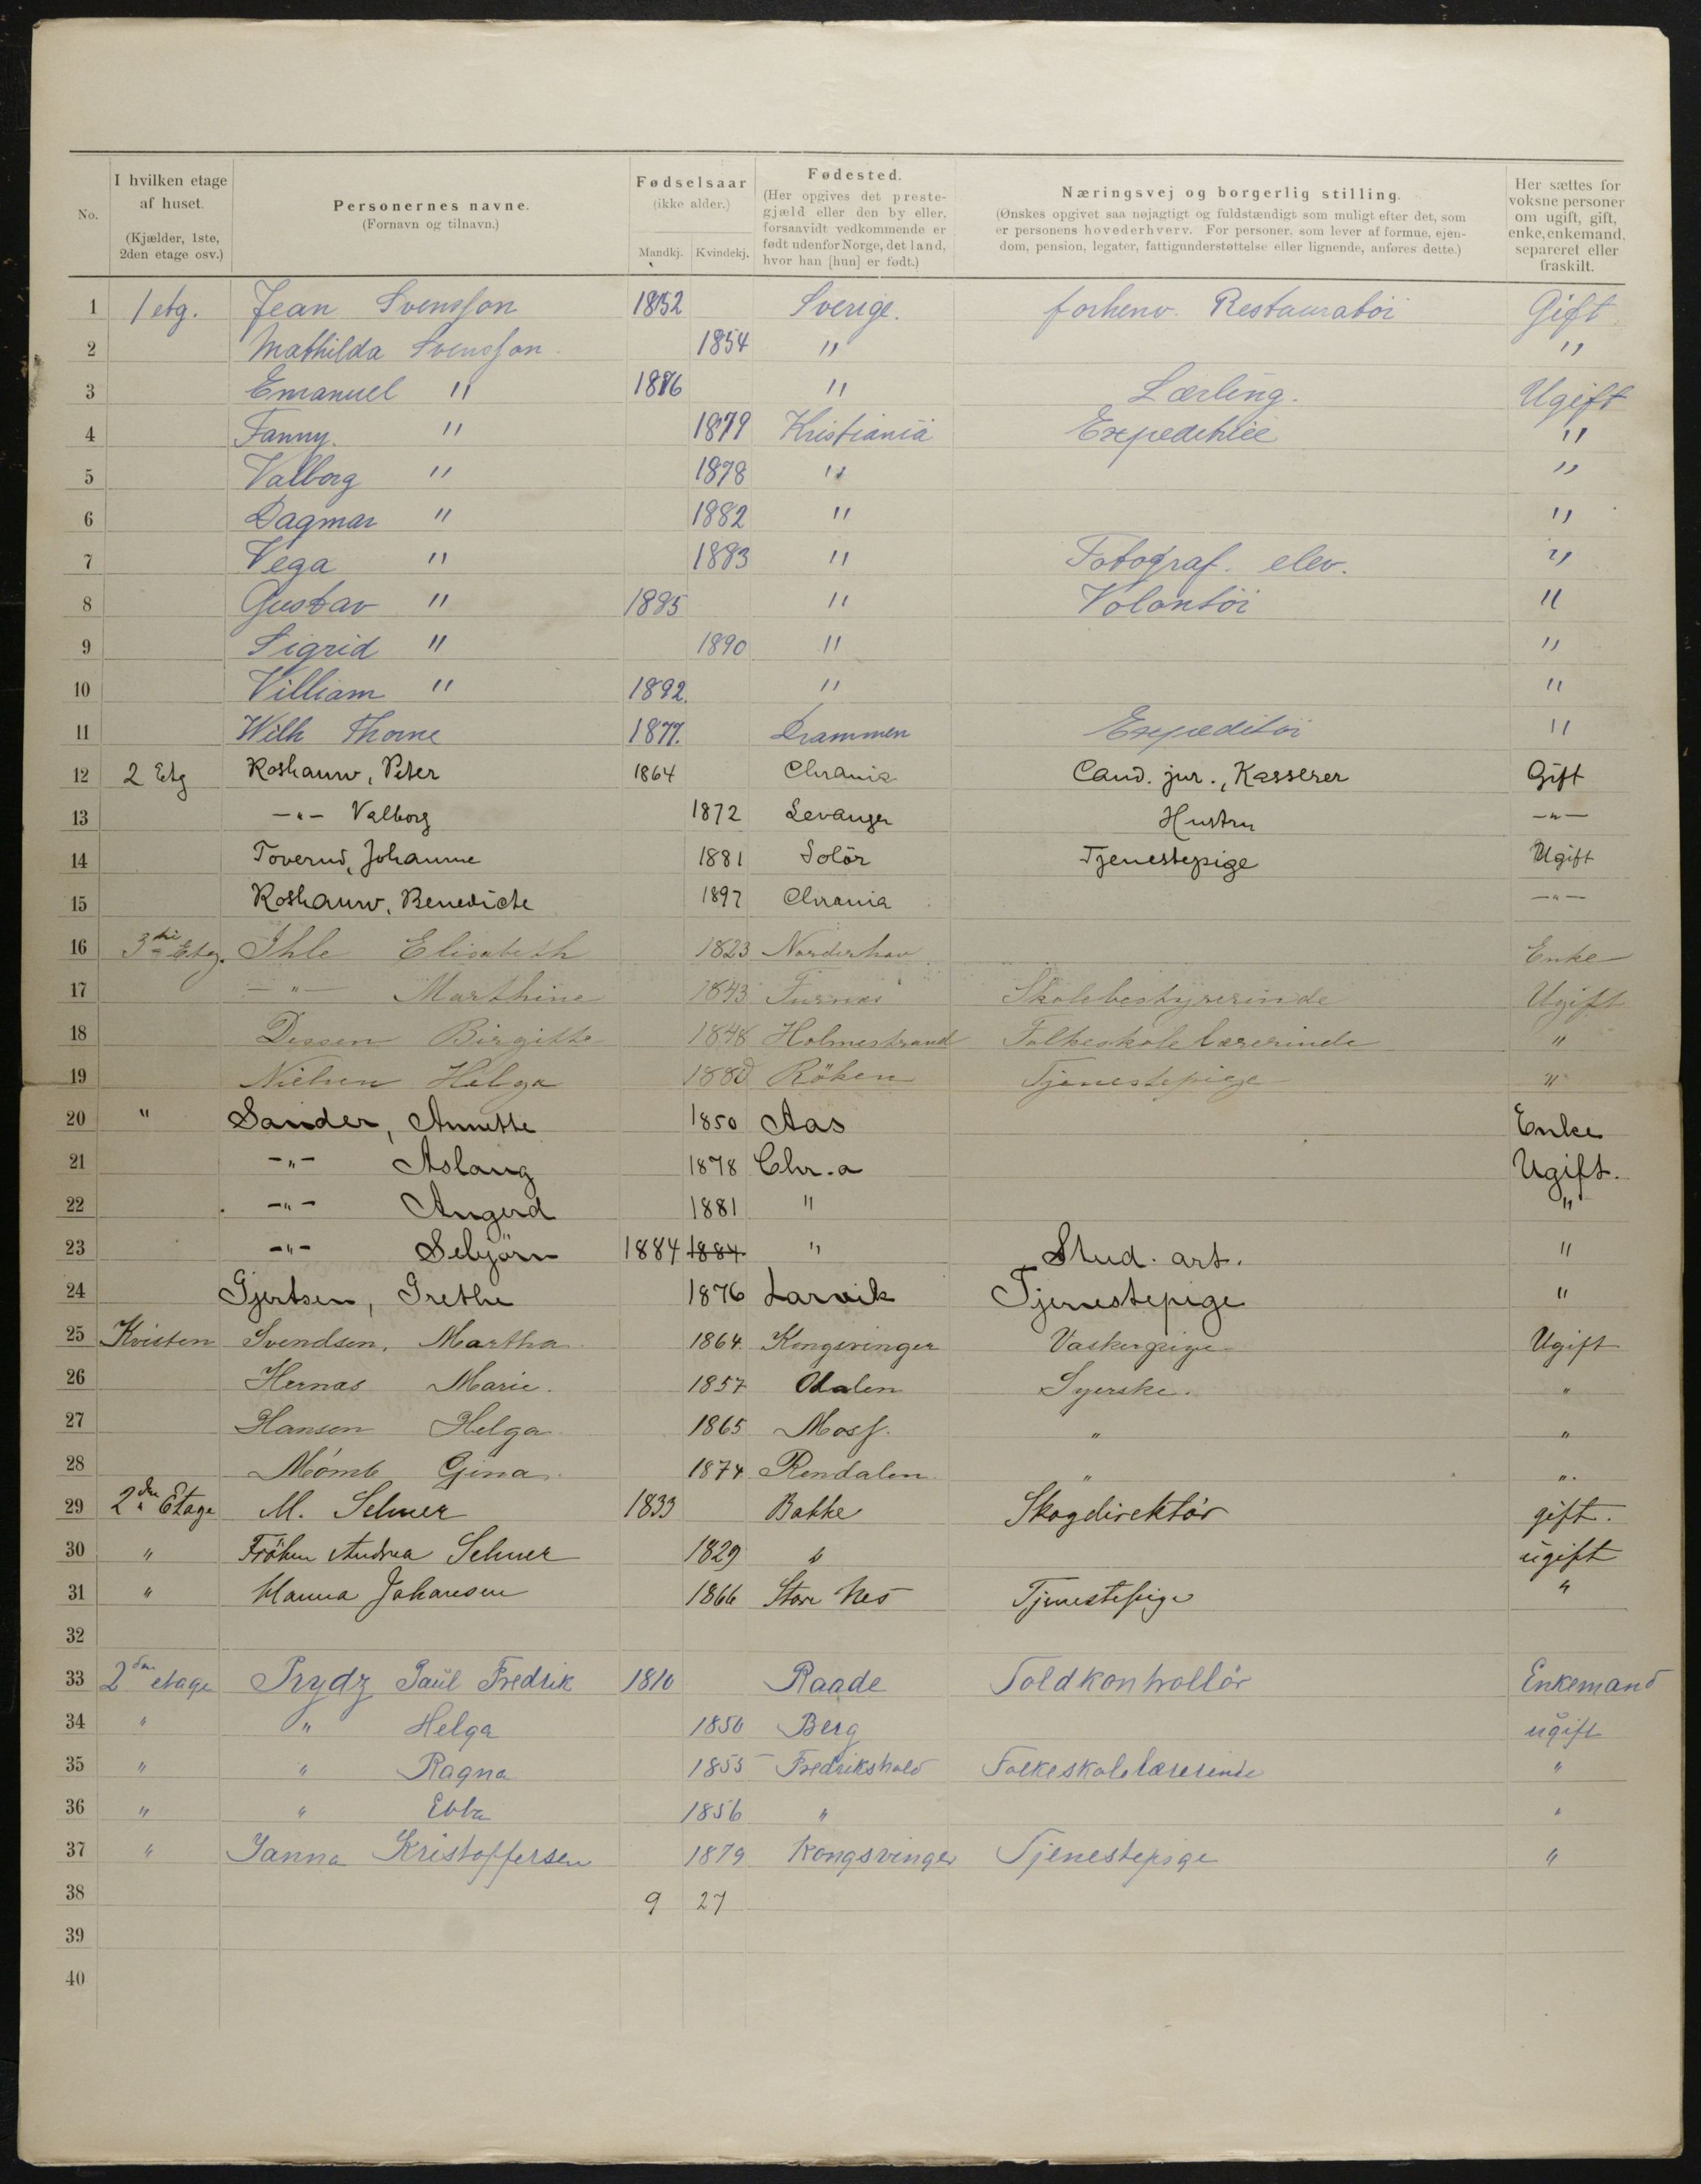 No.
I hvilken etage af huset.
(Kjælder, 1ste, 2den etage osv.)
Personernes navne.
(Fornavn og tilnavn.)
Fødselsaar
(ikke alder.)
Mandkj. Kvindekj.
Fødested.
(Her opgives det preste-
gjæld eller den by eller,
forsaavidt vedkommende er
født udenfor Norge, det land,
hvor han [hun] er født.)
Næringsvej og borgerlig stilling.
(Ønskes opgivet saa nøjagtigt og fuldstændigt som muligt efter det, som
er personens hovederhverv. For personer, som lever af formue, ejen-
dom, pension, legater, fattigunderstøttelse eller lignende, anføres dette.)
Her sættes for
voksne personer
om ugift, gift,
enke, enkemand,
separeret eller
fraskilt.
1 1 etg. Jean Svensson 1852 Sverige. forhenv. Restauratör Gift
2 Mathilda Svensson 1854 " "
3 Emanuel " 1876 " Lærling. Ugift
4 Fanny. " 1879 Kristiania Expeditrice "
5 Valborg " 1878 " "
6 Dagmar " 1882 " "
7 Vega " 1883 " Fotograf. elev. "
8 Gustav " 1885 " Volontör "
9 Sigrid " 1890 " "
10 Villiam " 1892. " "
11 Wilh Thorne 1877. Drammen Expeditör "
12 2 Etg Roshauw, Peter 1864 Chrania Cand. jur., Kasserer Gift
13 -"- Valborg 1872 Levanger Hustru -"-
14 Toverud, Johanne 1881 Solör Tjenestepige Ugift
15 Roshauw, Benedicte 1897 Chrania -"-
16 3die Etg. Ihle Elisabeth 1823 Norderhov Enke
17 -"- Marthine 1843 Furnæs Skolebestyrerinde Ugift
18 Dessen Birgitte 1848 Holmestrand Folkeskolelærerinde "
19 Nielsen Helga 1880 Röken Tjenestepige "
20 " Sander, Annette 1850 Aas Enke
21 -"- Aslaug 1878 Chr.a Ugift.
22 -"- Angerd 1881 " "
23 -"- Sebjörn 1884 1884 " Stud. art. "
24 Gjertsen, Grethe 1876 Larvik Tjenestepige "
25 Kvisten Svendsen, Martha 1864 Kongsvinger Vaskerpige Ugift
26 Hernæs Marie. 1857 Odalen Syerske. "
27 Hansen Helga 1865 Moss. " "
28 Mömb Gina. 1874 Rendalen " "
29 2den Etage M. Selmer 1833 Bakke Skogdirektör gift.
30 " Fröken Andrea Selmer 1829 " ugift
31 " Hanna Johansen 1866 Store Nes Tjenestepige "
32
33 2den etage Prydz Paul Fredrik 1810 Raade Toldkontrollör Enkemand
34 " " Helga 1850 Berg ugift
35 " " Ragna 1855 Fredrikshald Folkeskolelærerinde "
36 " " Ebba 1856 " "
37 " Janna Kristoffersen 1879 Kongsvinger Tjenestepige "
38 9 27
39
40